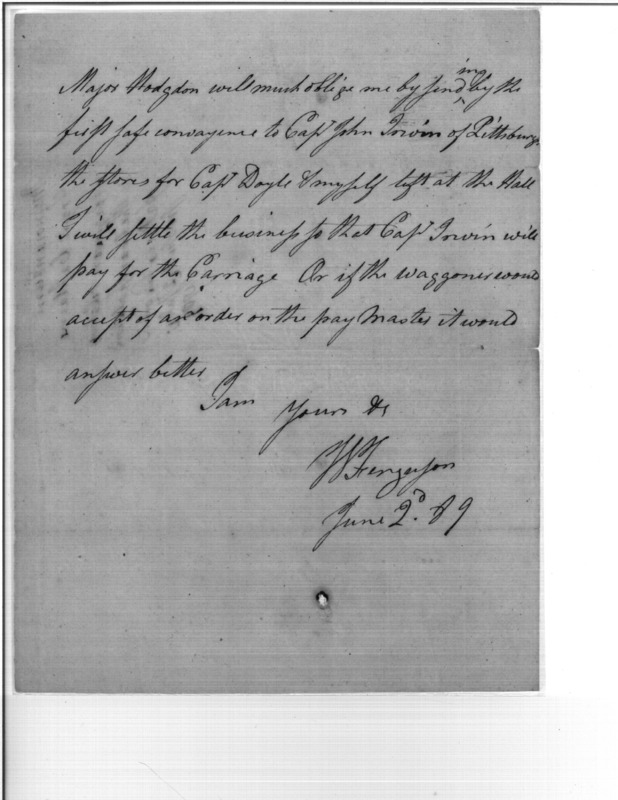 Major Hodgdon will much oblige me by sending by the
first safe convayence to Capt John Irwin of Pittsburg
the stores for Capt Doyle & myself left at the Hall
I will settle the business so that Capt Irwin will
pay for the Carriage Or if the waggoner would
accept of an order on the pay Master it would
answer better
I am
yours &c
W Ferguson
June 2d. 89